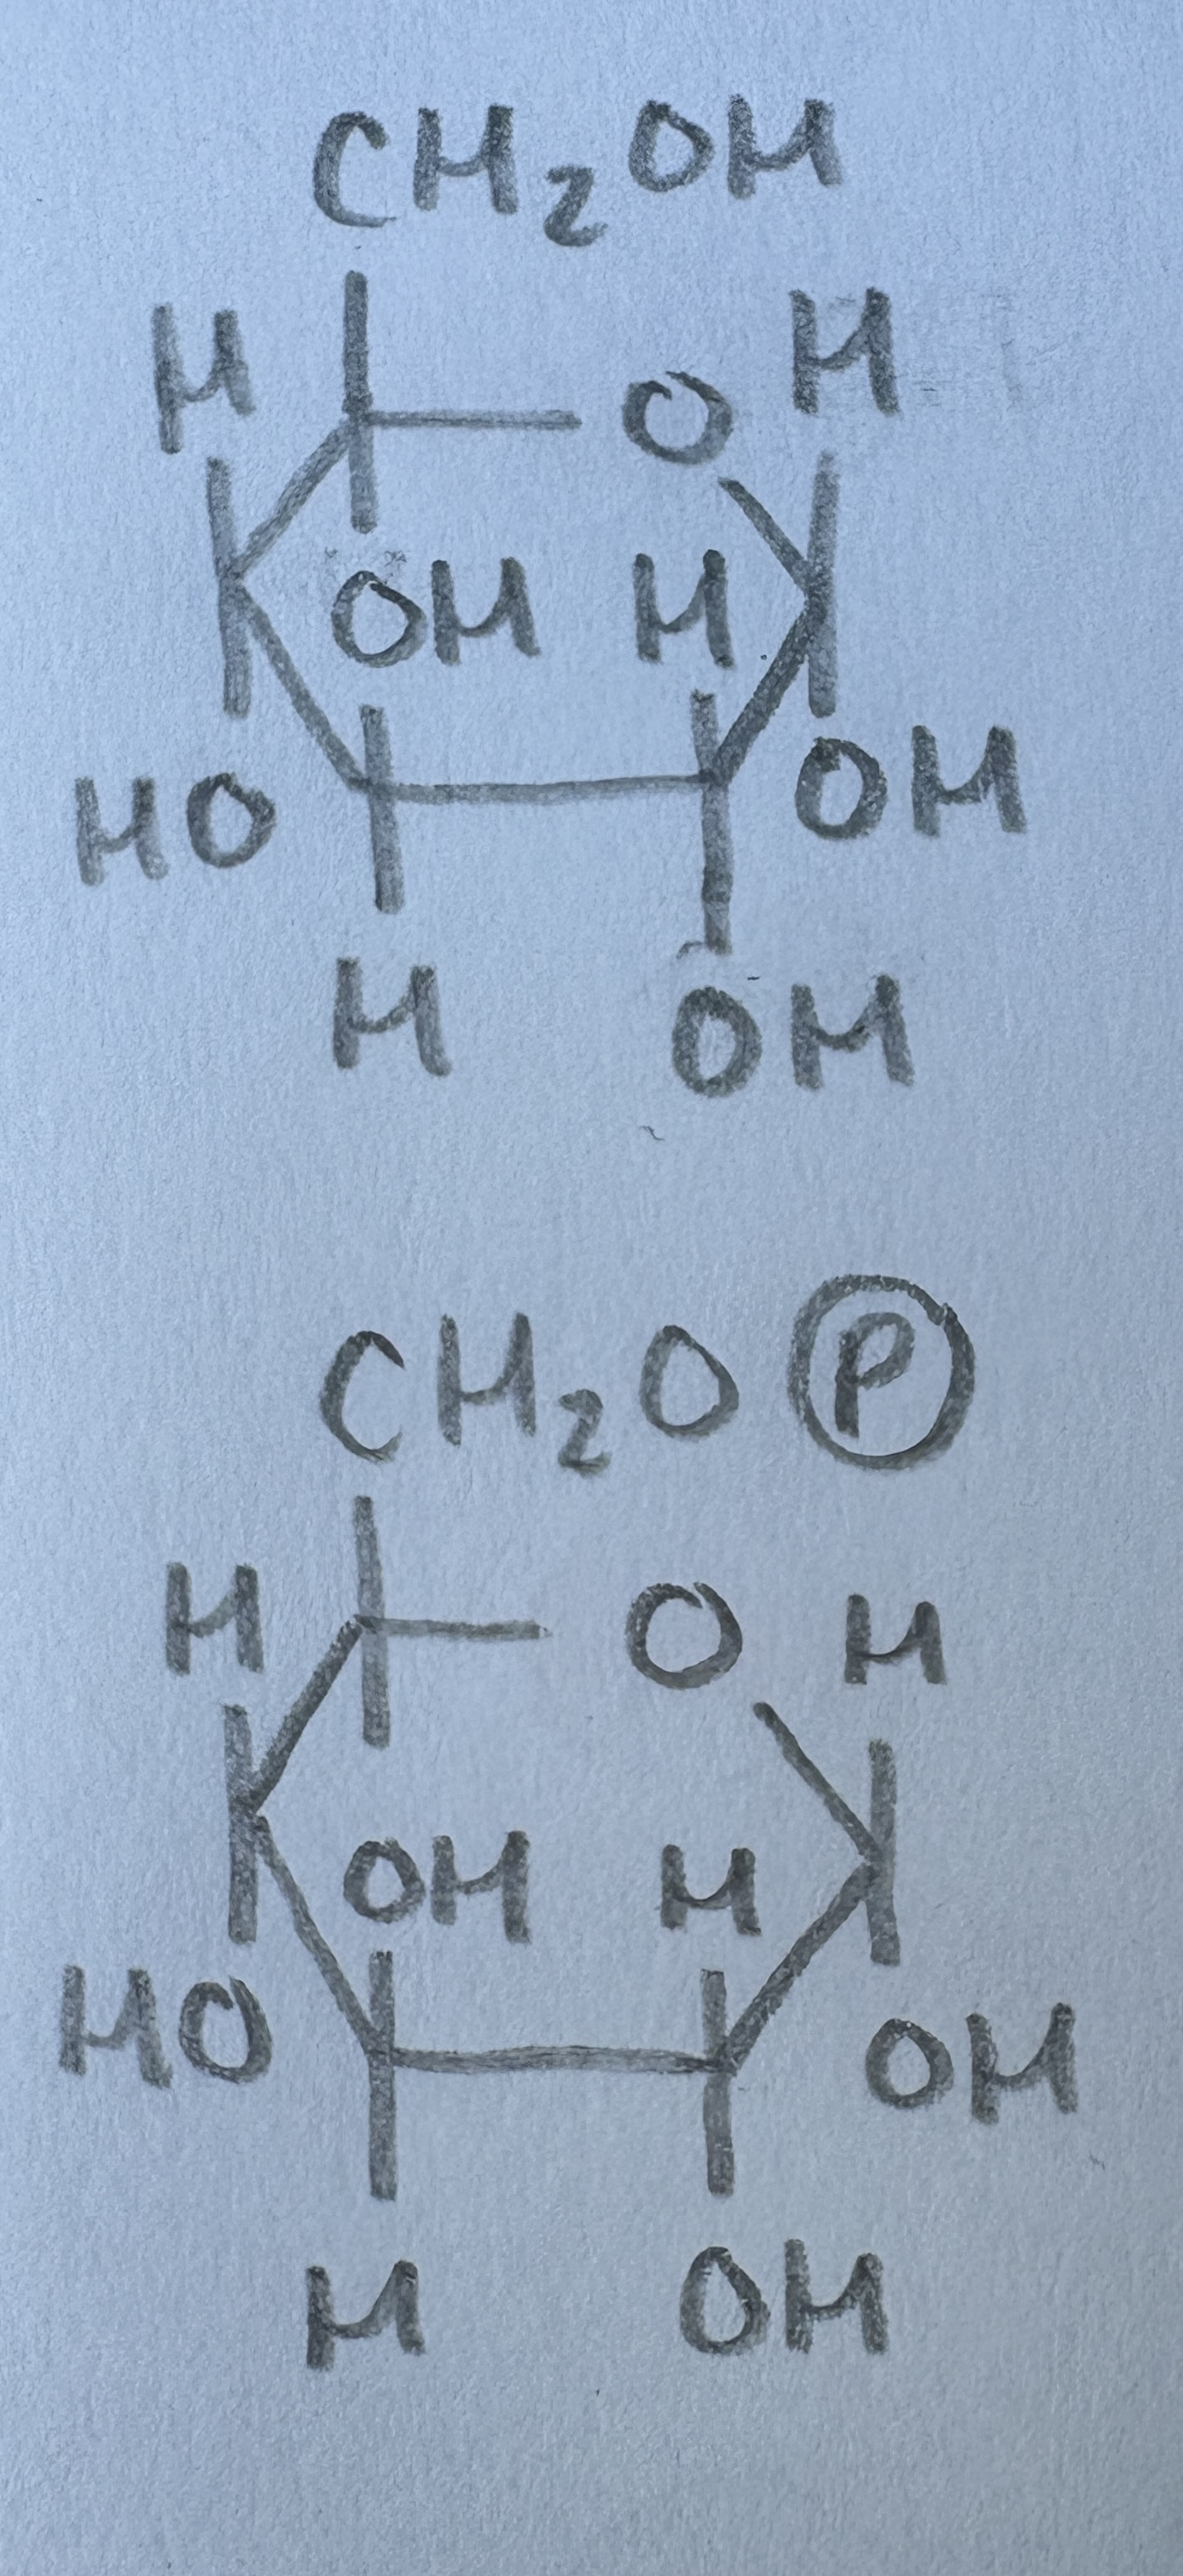 CH₂OH
H O H
OH H
HO OH
H OH
CH₂O P
H O H
OH H
HO OH
H OH